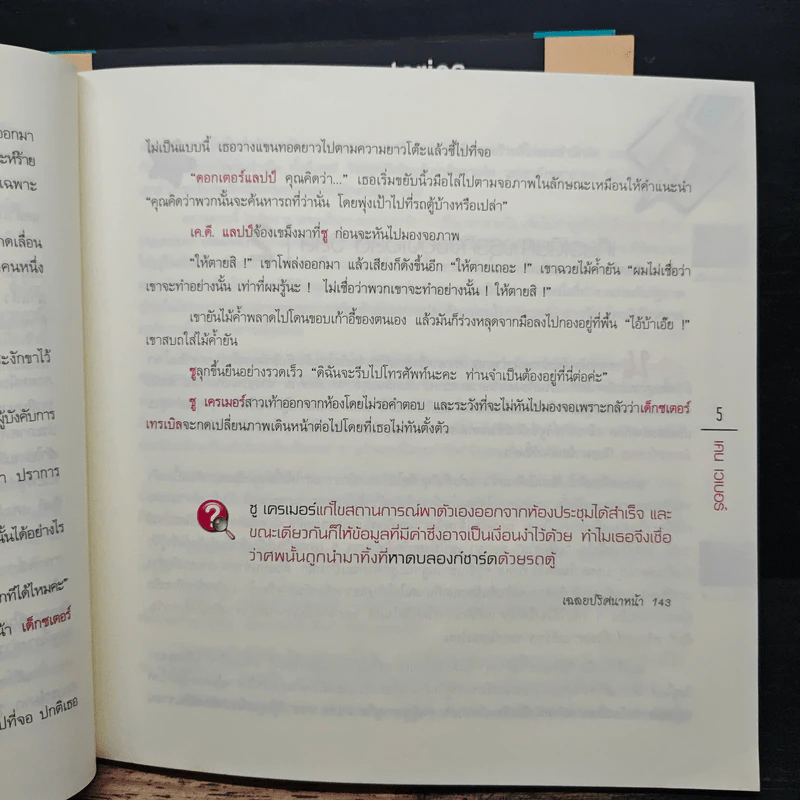 ไม่เป็นแบบนี้ เธอวางแขนทอดยาวไปตามความยาวโต๊ะแล้วชี้ไปที่จอ
“ดอกเตอร์แลปป์ คุณคิดว่า...” เธอเริ่มขยับนิ้วมือไล่ไปตามจอภาพในลักษณะเหมือนให้คำแนะนำ
“คุณคิดว่าพวกนั้นจะค้นหารถที่ว่านั่น โดยพุ่งเป้าไปที่รถตู้บ้างหรือเปล่า”
เค.ดี. แลปป์จ้องเขม็งมาที่ซู ก่อนจะหันไปมองจอภาพ
“ให้ตายสิ !” เขาโพล่งออกมา แล้วเสียงก็ดังขึ้นอีก “ให้ตายเถอะ !” เขาฉวยไม้ค้ำยัน “ผมไม่เชื่อว่า
เขาจะทำอย่างนั้น เท่าที่ผมรู้นะ ! ไม่เชื่อว่าพวกเขาจะทำอย่างนั้น ! ให้ตายสิ !”
เขายันไม้ค้ำพลาดไปโดนขอบเก้าอี้ของตนเอง แล้วมันก็ร่วงหลุดจากมือลงไปกองอยู่ที่พื้น “ไอ้บ้าเอ๊ย !”
เขาสบถใส่ไม้ค้ำยัน
ซูลุกขึ้นยืนอย่างรวดเร็ว “ดิฉันจะรีบไปโทรศัพท์นะคะ ท่านจำเป็นต้องอยู่ที่นี่ต่อค่ะ”
ซู เครเมอร์สาวเท้าออกจากห้องโดยไม่รอคำตอบ และระวังที่จะไม่หันไปมองจอเพราะกลัวว่าเด็กซเตอร์
เทรเบิลจะกดเปลี่ยนภาพเดินหน้าต่อไปโดยที่เธอไม่ทันตั้งตัว
ซู เครเมอร์แก้ไขสถานการณ์พาตัวเองออกจากห้องประชุมได้สำเร็จ และ
ขณะเดียวกันก็ให้ข้อมูลที่มีค่าซึ่งอาจเป็นเงื่อนงำไว้ด้วย ทำไมเธอจึงเชื่อ
ว่าศพนั้นถูกนำมาทิ้งที่หาดบลองก์ชาร์ดด้วยรถตู้
เฉลยปริศนาหน้า 143
5
เคน เวเบอร์